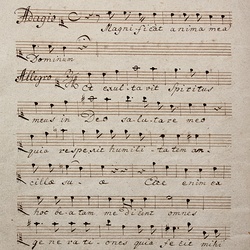 Adagio
Magnificat anima mea
Dominum
Allegro
Et exultavit Spiritus
meus in Deo salutare meo
quia respexit humilitatem an
cillæ suæ Ecce enim ea
hoc beatam me dicent omnes
generationes quia fecit mihi